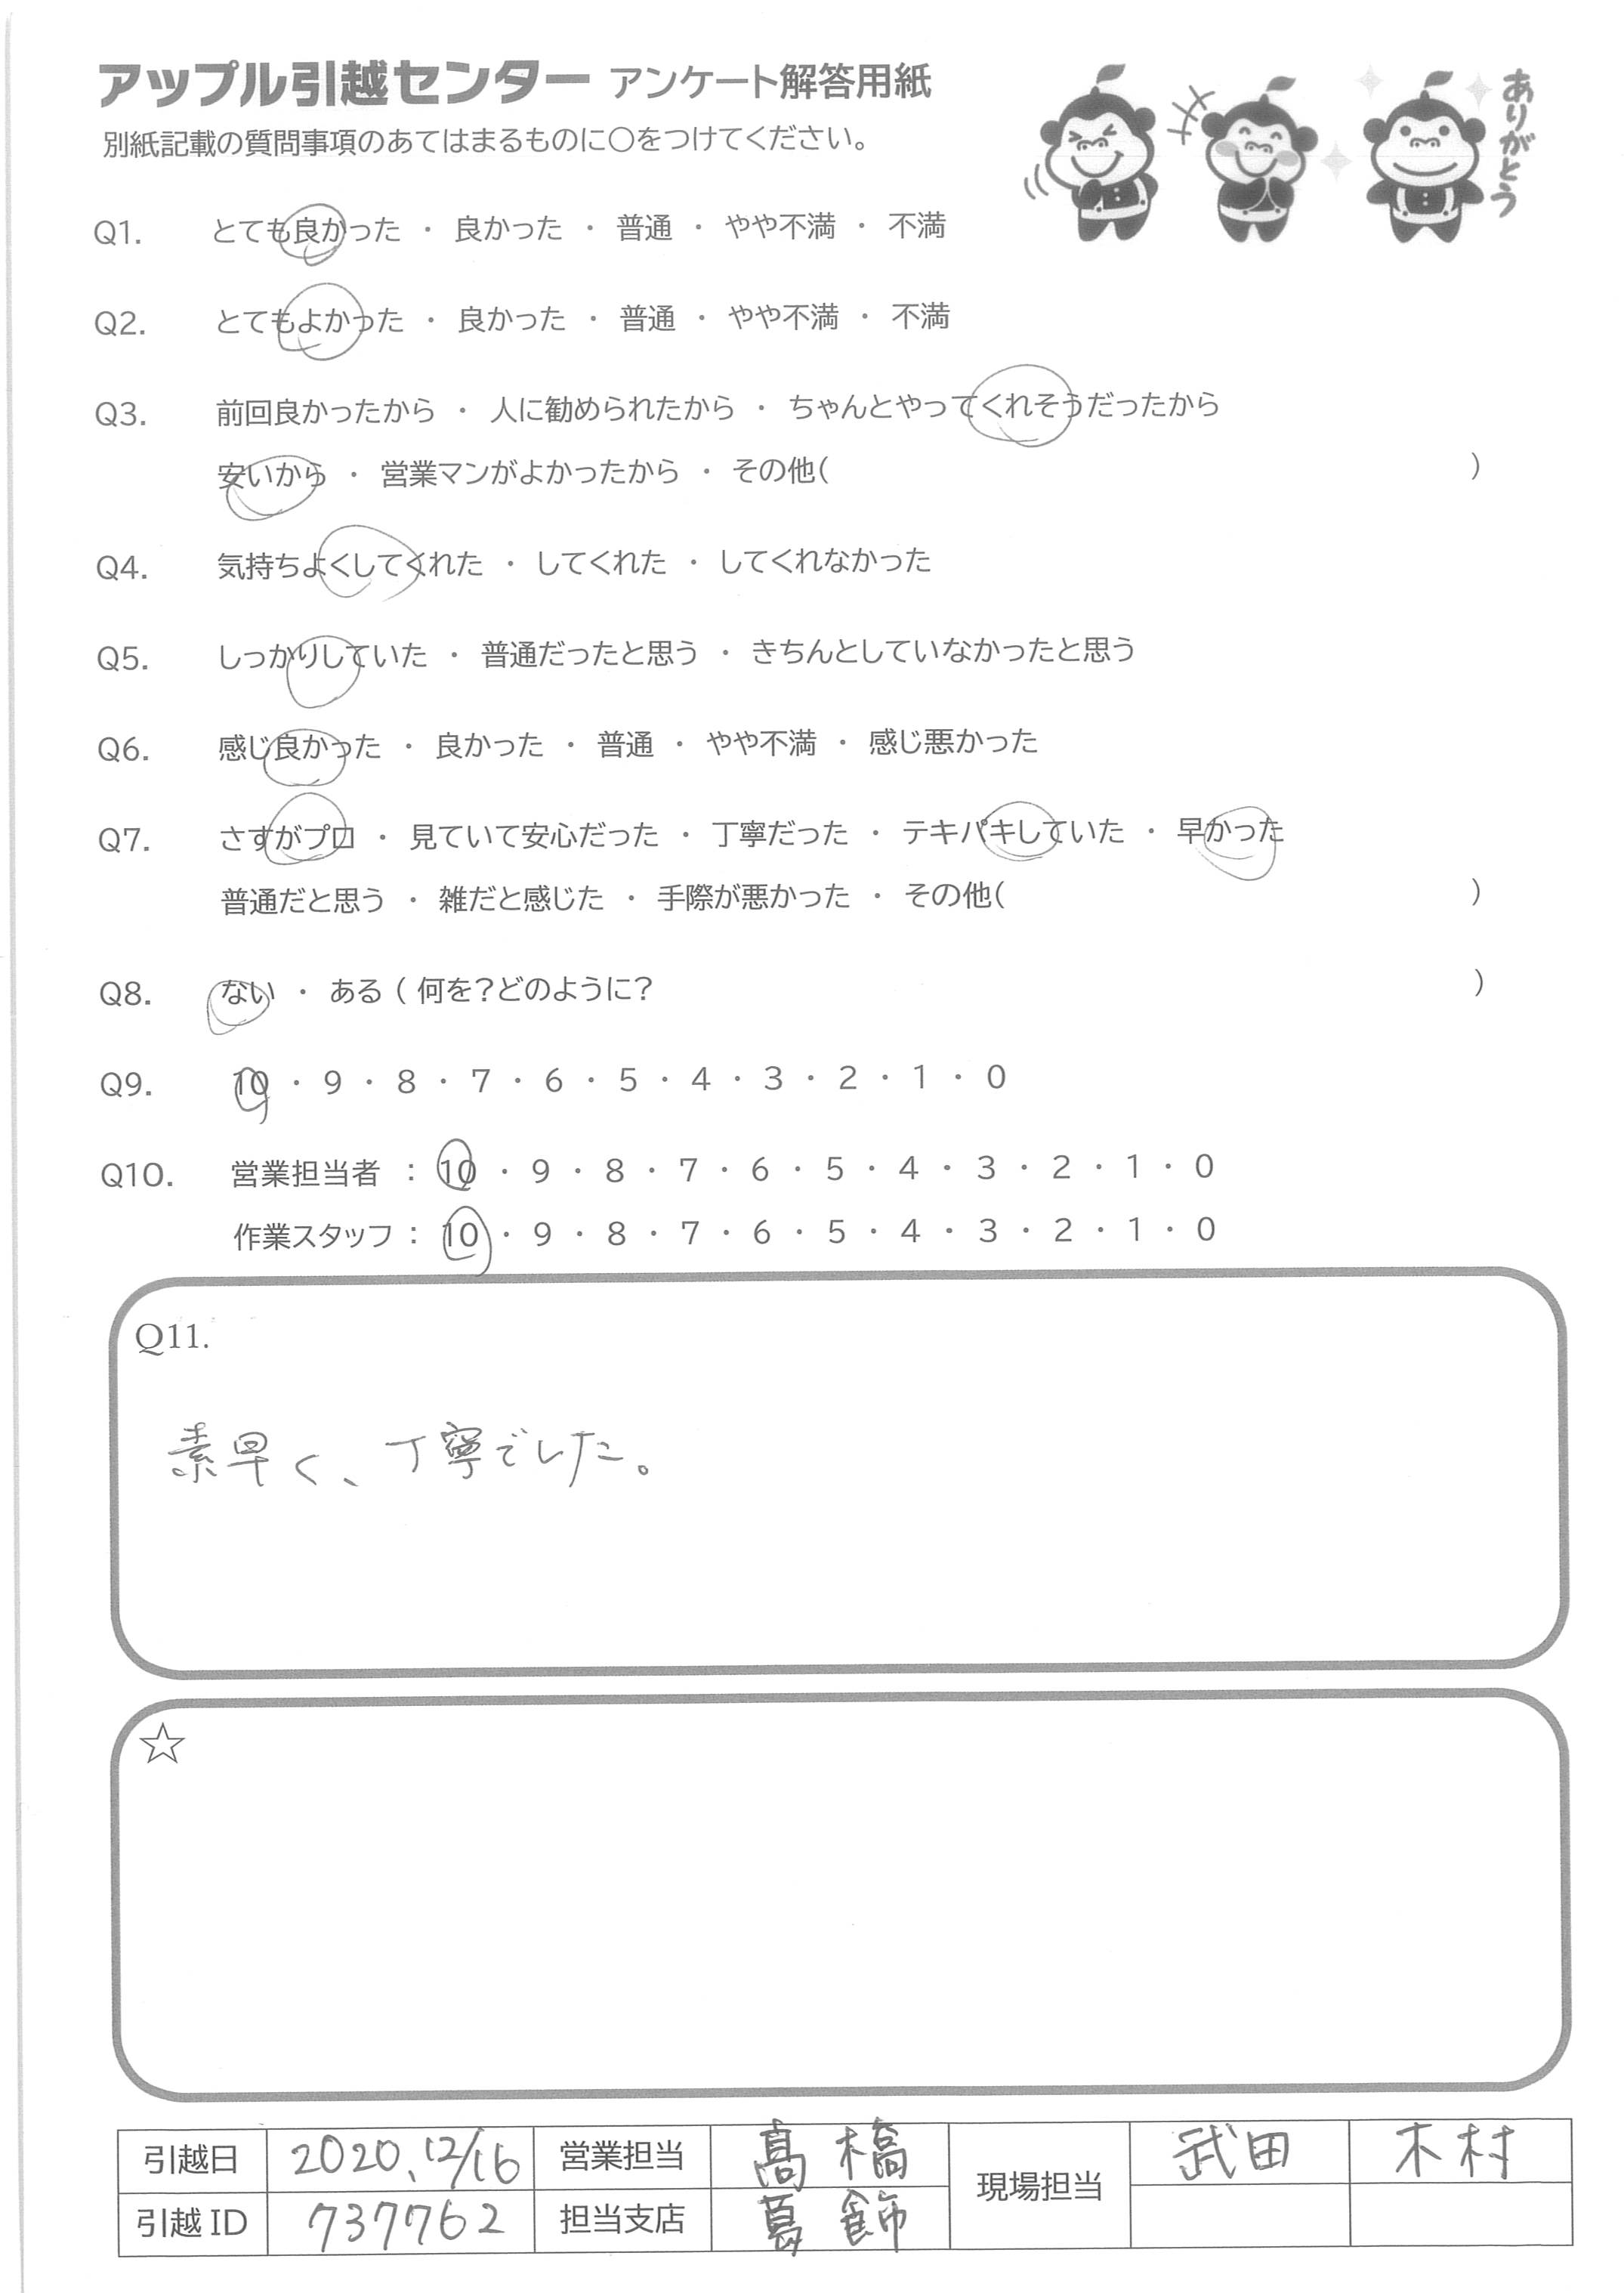 アップル引越センター アンケート解答用紙
別紙記載の質問事項のあてはまるものに〇をつけてください。
ありがとう
Q1. とても良かった ・ 良かった ・ 普通 ・ やや不満 ・ 不満
Q2. とてもよかった ・ 良かった ・ 普通 ・ やや不満 ・ 不満
Q3. 前回良かったから ・ 人に勧められたから ・ ちゃんとやってくれそうだったから
安いから ・ 営業マンがよかったから ・ その他( )
Q4. 気持ちよくしてくれた ・ してくれた ・ してくれなかった
Q5. しっかりしていた ・ 普通だったと思う ・ きちんとしていなかったと思う
Q6. 感じ良かった ・ 良かった ・ 普通 ・ やや不満 ・ 感じ悪かった
Q7. さすがプロ ・ 見ていて安心だった ・ 丁寧だった ・ テキパキしていた ・ 早かった
普通だと思う ・ 雑だと感じた ・ 手際が悪かった ・ その他( )
Q8. ない ・ ある ( 何を?どのように? )
Q9. 10 ・ 9 ・ 8 ・ 7 ・ 6 ・ 5 ・ 4 ・ 3 ・ 2 ・ 1 ・ 0
Q10. 営業担当者 : 10 ・ 9 ・ 8 ・ 7 ・ 6 ・ 5 ・ 4 ・ 3 ・ 2 ・ 1 ・ 0
作業スタッフ : 10 ・ 9 ・ 8 ・ 7 ・ 6 ・ 5 ・ 4 ・ 3 ・ 2 ・ 1 ・ 0
Q11.
素早く、丁寧でした。
☆
引越日 2020、12/16 営業担当 髙橋 現場担当 武田 木村
引越ID 737762 担当支店 葛飾